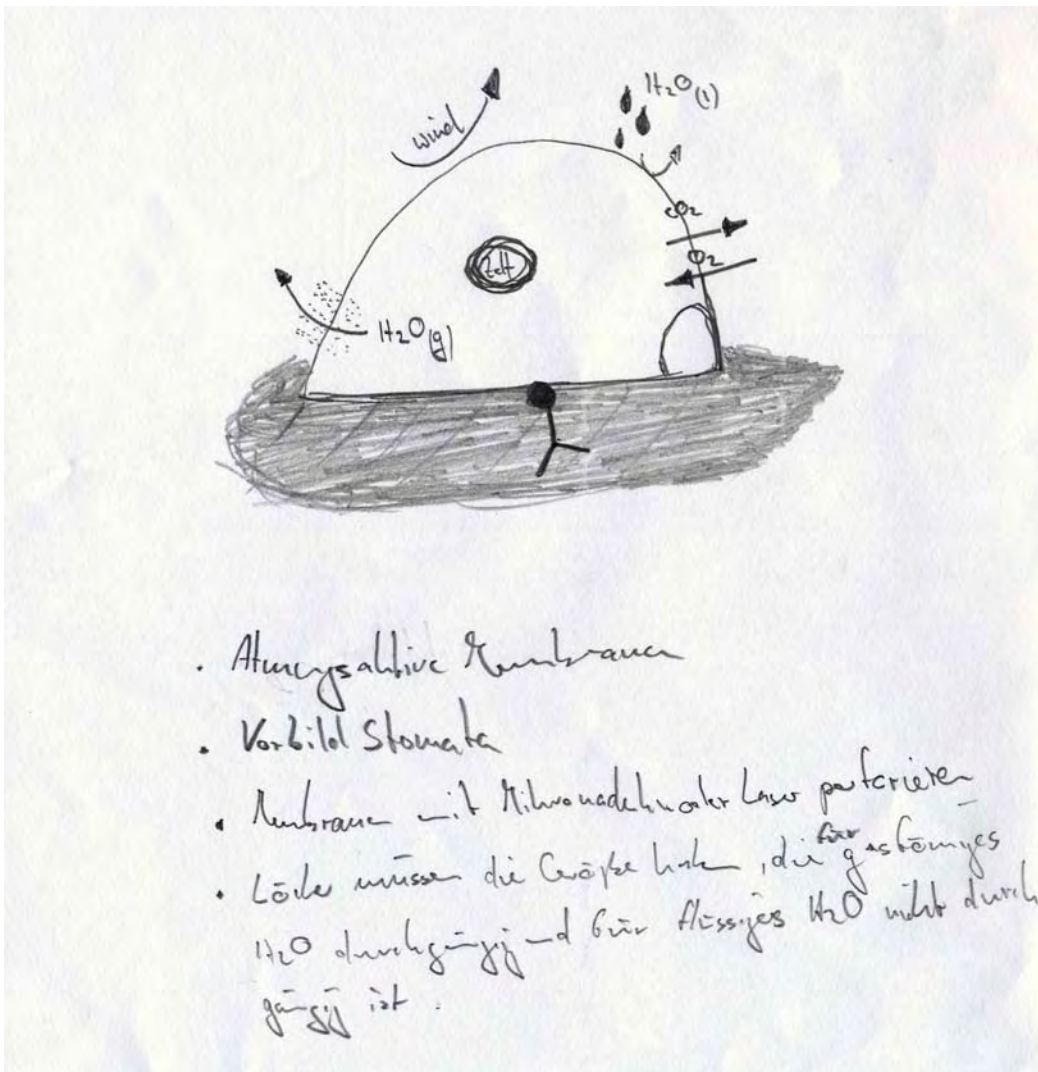 H₂O(l)
wind
CO₂
O₂
Zelt
H₂O(g)
· Atmungsaktive Membranen
· Vorbild Stomata
· Membranen mit Mikronadeln oder Laser perforieren
· Löcher müssen die Größe haben, die für gasförmiges
H₂O durchgängig und für flüssiges H₂O nicht durch
gängig ist.